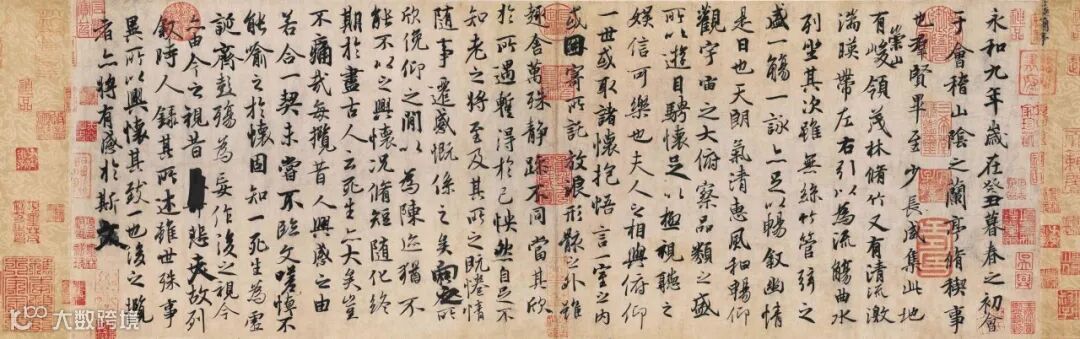 永和九年歲在癸丑暮春之初會
于會稽山陰之蘭亭脩稧事
也羣賢畢至少長咸集此地
有崇山峻領茂林脩竹又有清流激
湍暎帶左右引以為流觴曲水
列坐其次雖無絲竹管弦之
盛一觴一詠亦足以暢敘幽情
是日也天朗氣清惠風和暢仰
觀宇宙之大俯察品類之盛
所以遊目騁懷足以極視聽之
娛信可樂也夫人之相與俯仰
一世或取諸懷抱悟言一室之內
或因寄所託放浪形骸之外雖
趣舍萬殊靜躁不同當其欣
於所遇蹔得於己怏然自足不
知老之將至及其所之既惓情
隨事遷感慨係之矣向之所
欣俛仰之閒以為陳迹猶不
能不以之興懷況脩短隨化終
期於盡古人云死生亦大矣豈
不痛哉每攬昔人興感之由
若合一契未嘗不臨文嗟悼不
能喻之於懷固知一死生為虛
誕齊彭殤為妄作後之視今
亦由今之視昔悲夫故列
敘時人錄其所述雖世殊事
異所以興懷其致一也後之攬
者亦將有感於斯文
大数跨境